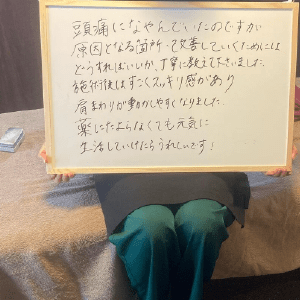 頭痛になやんでいたのですが
原因となる箇所、改善していくためには
どうすればいいか、丁寧に教えて下さいました。
施術後はすごくスッキリ感があり
肩まわりが動かしやすくなりました。
薬にたよらなくても元気に
生活していけたらうれしいです！